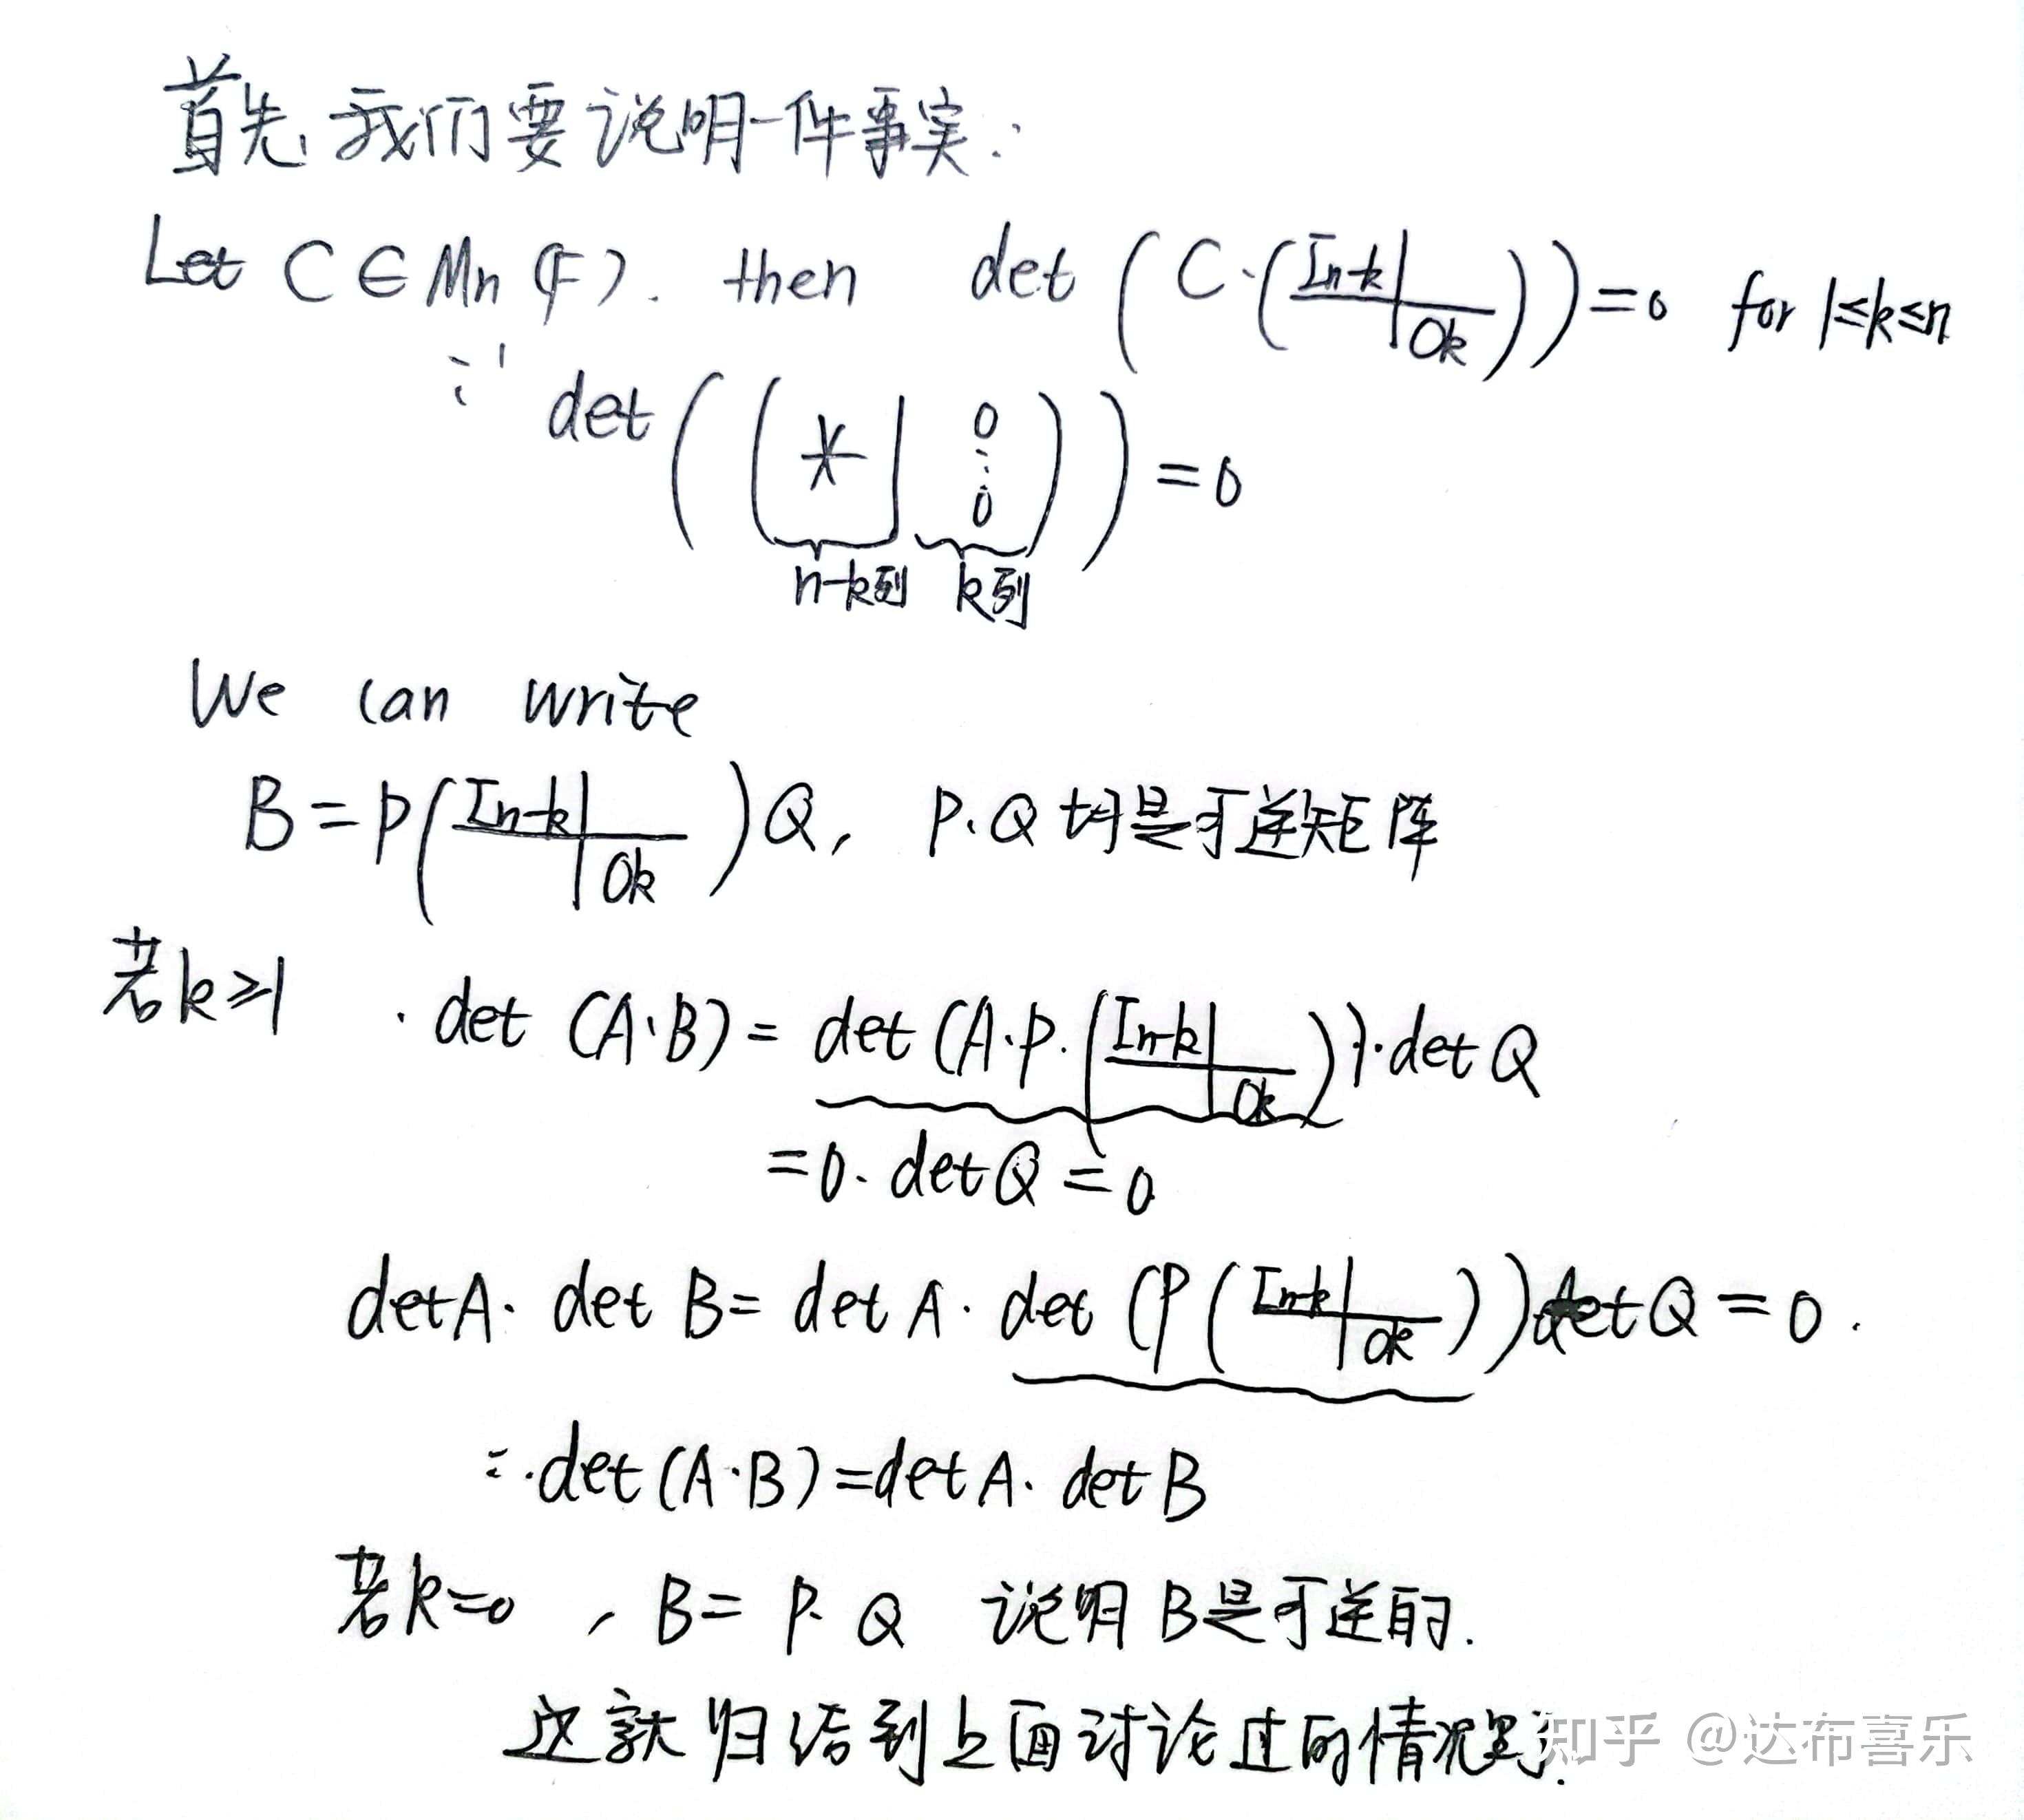 首先,我们要说明一件事实:
Let C ∈ Mn(F). then det(C·(In-k| |Ok))=0 for 1≤k≤n
∵ det((* | 0 ⋮ 0))=0
n-k列 k列
We can write
B=P(In-k| |Ok)Q, P.Q均是可逆矩阵
若k≥1 . det(A·B)=det(A·P·(In-k| |Ok))·detQ
=0·detQ=0
detA·detB=detA·det(P(In-k| |Ok))detQ=0.
∴det(A·B)=detA·detB
若k=0, B=P·Q 说明B是可逆的.
这就归结到上面讨论过的情况
知乎 @达布喜乐